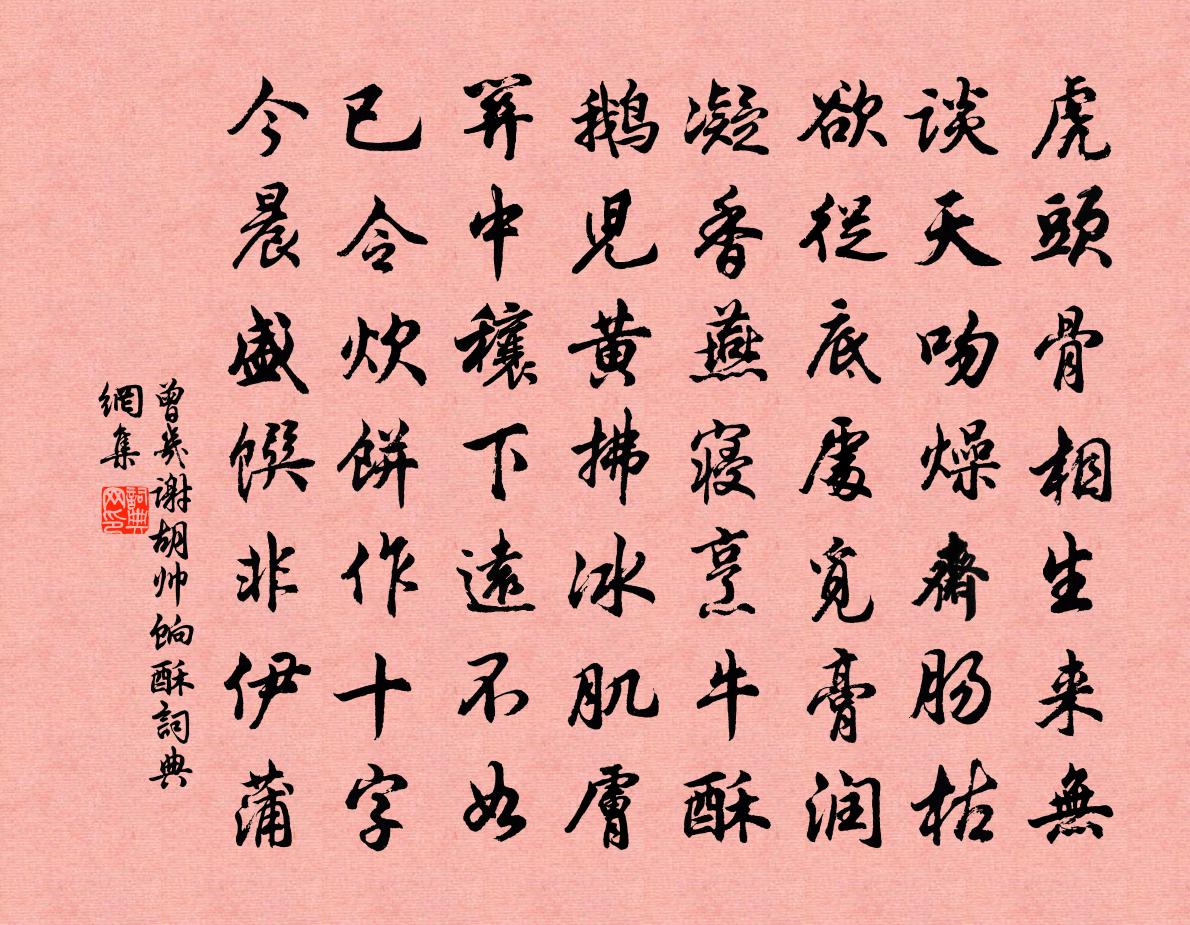 虎頭骨相生来無
谈天吻燥齋肠枯
欲從底處覓膏润
凝香燕寝烹牛酥
鹅児黄拂冰肌膚
笄中穰下遠不如
已令炊餅作十字
今晨盛馔非伊蒲
曾幾谢胡帅餉酥詞典
網集
詞典网印